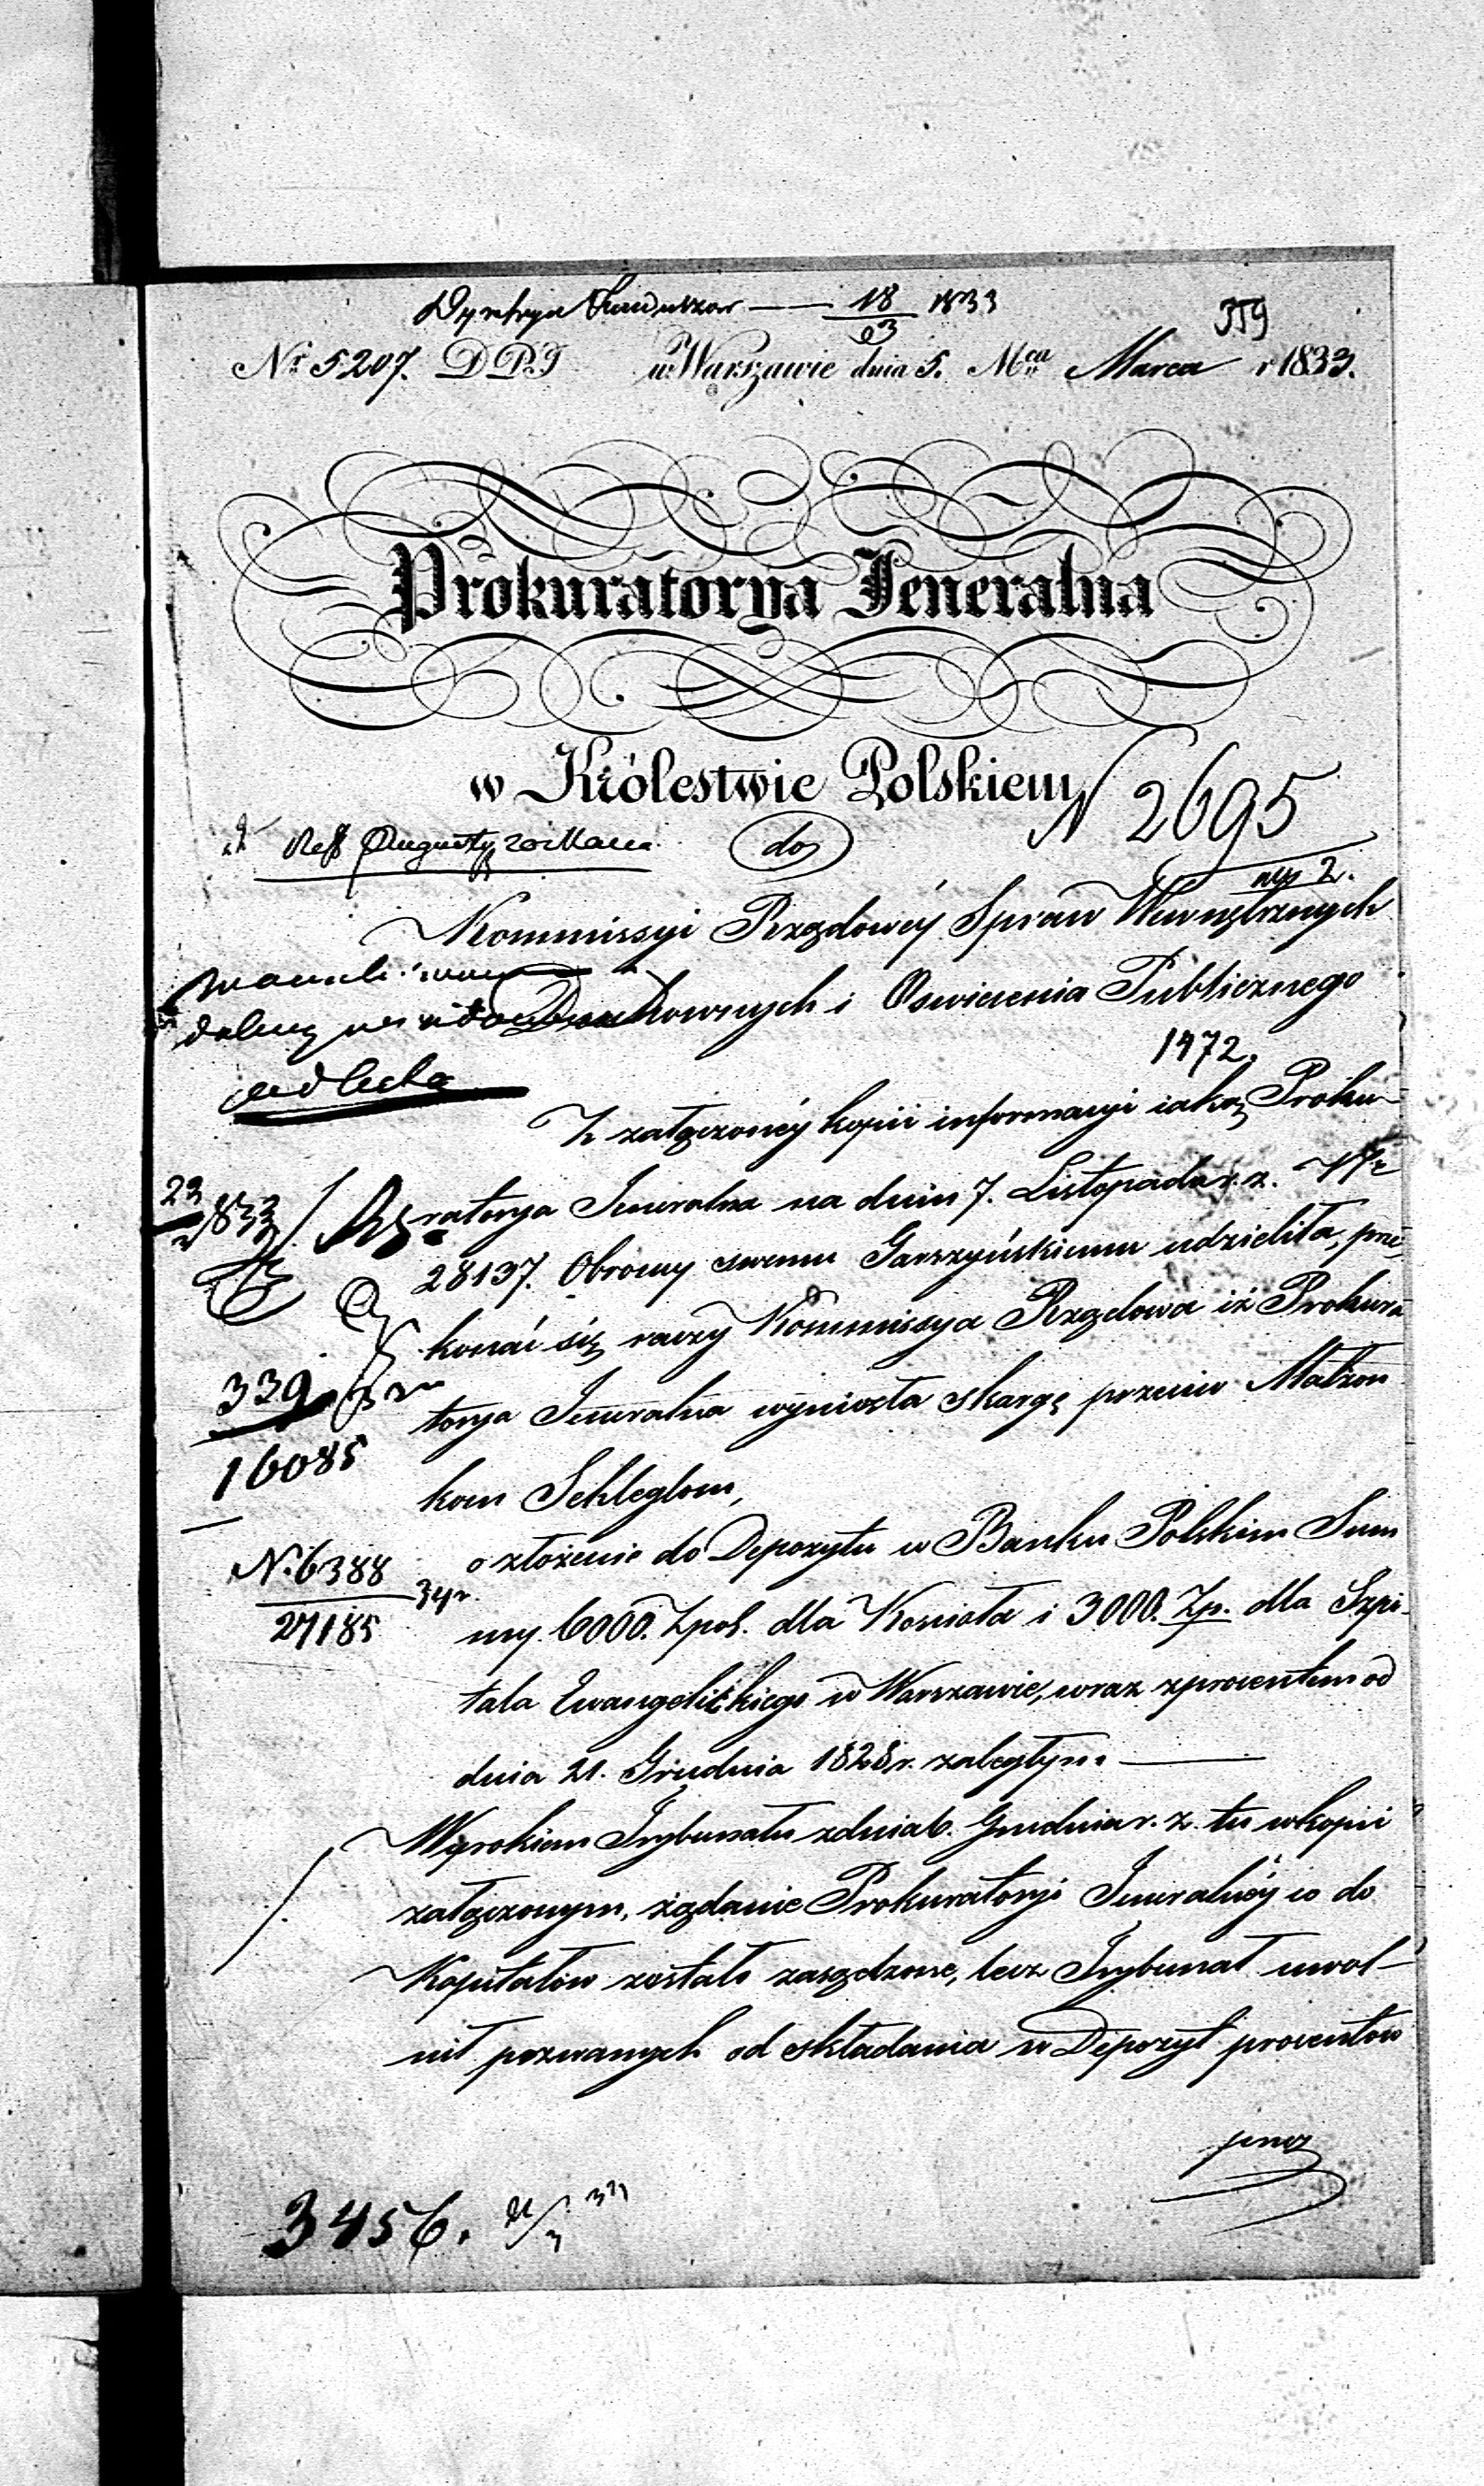 18/03 1833
359
Nr 5207. D.P.J w Warszawie dnia 5. Mca Marca r 1833.
Prokuratorya Jeneralna
w Królestwie Polskiem
N 2695
do
Kommissyi Rządowéy Spraw Wewnętrznych
Duchownych i Oswiecenia Publicznego
1472.
Z załączonéy kopii informacyi iaką Proku-
ratorya Jeneralna na dniu 7. Listopada r. z. Nr
28137. Obrońcy swemu Garszyńskiemu udzieliła, prze-
konać się raczy Kommissya Rządowa iż Prokura
torya Jeneralna wyniosła skargę przeciw Małżon
kom Schleglom,
o złożenie do Depozytu w Banku Polskim Sum
my 6000. Zpol. dla Koscioła i 3000. Zp. dla Szpi-
tala Ewangelickiego w Warszawie, wraz z procentem od
dnia 21. Grudnia 1828 r. zaległym
Wyrokiem Trybunału z dnia 6. Grudnia r. z. tu w kopii
załączonym, żądanie Prokuratoryi Jeneralnéy co do
Kapitałów zostało zasądzone, lecz Trybunał uwol-
nił pozwanych od składania w Depozyt procentów
339
16085
N. 6388
27185
3456.